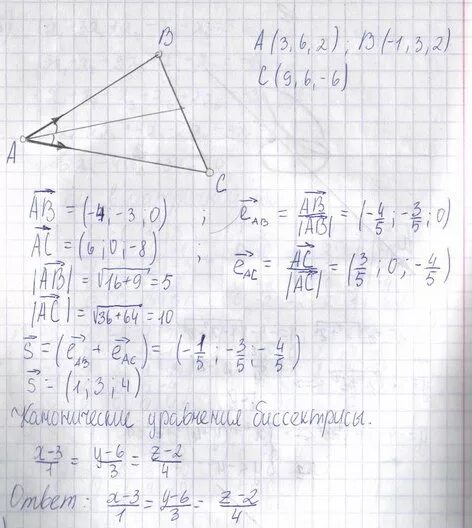 A(3,6,2), B(-1,3,2)
C(9,6,-6)
B
A
C
AB = (-4,-3,0) ; e_AB = AB/|AB| = (-4/5; -3/5; 0)
AC = (6;0;-8) ; e_AC = AC/|AC| = (3/5; 0; -4/5)
|AB| = √16+9 = 5
|AC| = √36+64 = 10
S = (e_AB + e_AC) = (-1/5; -3/5; -4/5)
S = (1;3;4)
Канонические уравнения биссектрисы.
x-3/1 = y-6/3 = z-2/4
Ответ: x-3/1 = y-6/3 = z-2/4